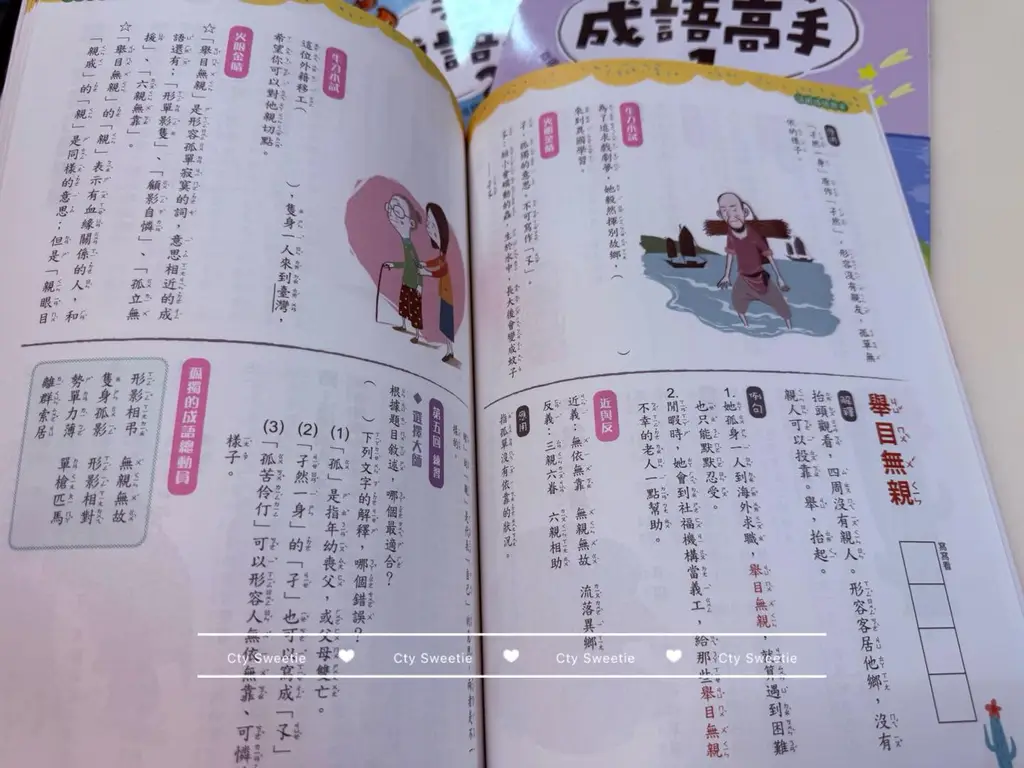 成語高手
1
「孑然一身」
牛刀小試
為了追求戲劇夢，她毅然揮別故鄉，（　）
來到異國學習。
火眼金睛
舉目無親
寫寫看
解釋
抬頭觀看，四周沒有親人。形容客居他鄉，沒有
親人可以投靠。舉，抬起。
例句
1.她孤身一人到海外求職，舉目無親，就算遇到困難
也只能默默忍受。
2.閒暇時，她會到社福機構當義工，給那些舉目無親
不幸的老人一點幫助。
近與反
近義：無依無靠　無親無故　流落異鄉
反義：三親六眷　六親相助
應用
指孤單沒有依靠的狀況。
牛刀小試
這位外籍移工（　），隻身一人來到臺灣，
希望你可以對他親切點。
火眼金睛
☆「舉目無親」是形容孤單寂寞的詞，意思相近的成
語還有：「形單影隻」、「顧影自憐」、「孤立無
援」、「六親無靠」。
☆「舉目無親」的「親」表示有血緣關係的人，和
「親戚」的「親」是同樣的意思；但是「親眼目
第五回 練習
◆選擇大師
根據題目敘述，哪個最適合？
（　）下列文字的解釋，哪個錯誤？
(1)「孤」是指年幼喪父，或父母雙亡。
(2)「孑然一身」的「孑」也可以寫成「孓」
(3)「孤苦伶仃」可以形容人無依無靠、可憐
樣子。
孤獨的成語總動員
形影相弔　無親無故
隻身孤影　形影相對
勢單力薄　單槍匹馬
離群索居
Cty Sweetie Cty Sweetie Cty Sweetie Cty Sweetie